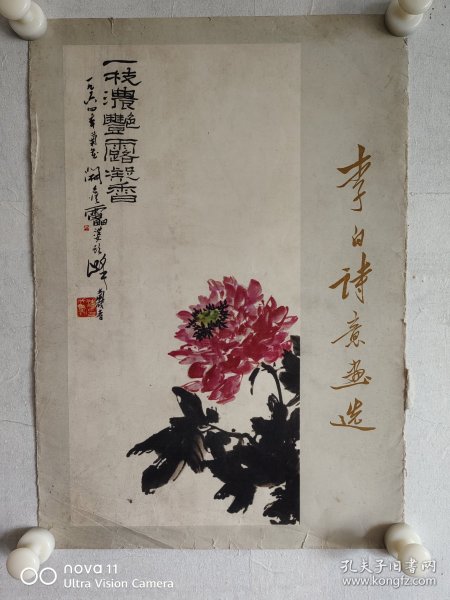 李白詩意畫选
一枝濃艷露凝香
一九六四年
nova 11
Ultra Vision Camera
孔夫子旧书网
www.kongfz.com